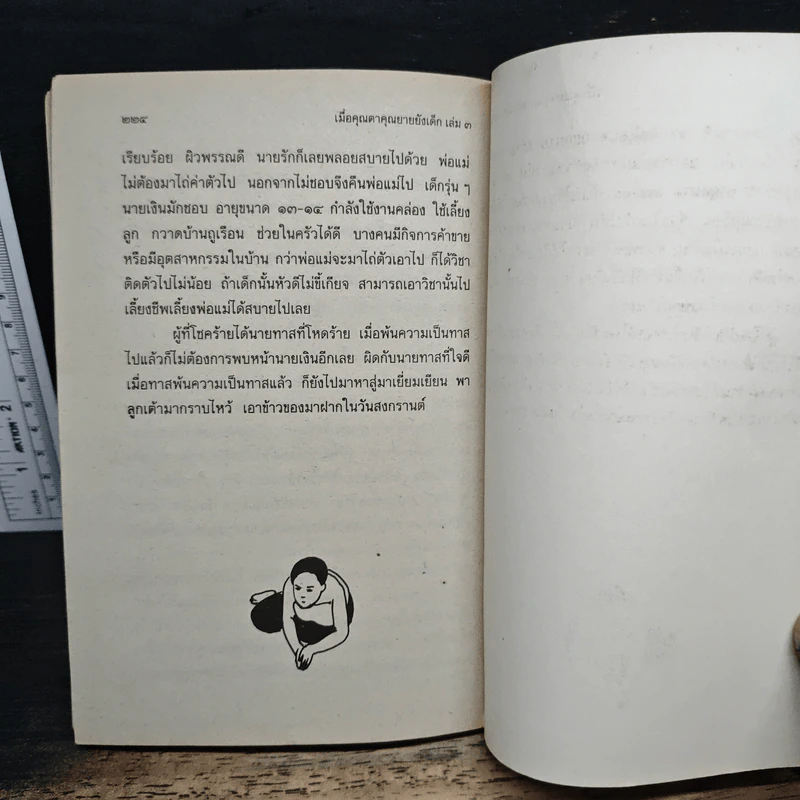 ๒๒๔ เมื่อคุณตาคุณยายยังเด็ก เล่ม ๓
เรียบร้อย ผิวพรรณดี นายรักก็เลยพลอยสบายไปด้วย พ่อแม่
ไม่ต้องมาไถ่ค่าตัวไป นอกจากไม่ชอบจึงคืนพ่อแม่ไป เด็กรุ่น ๆ
นายเงินมักชอบ อายุขนาด ๑๓-๑๔ กำลังใช้งานคล่อง ใช้เลี้ยง
ลูก กวาดบ้านถูเรือน ช่วยในครัวได้ดี บางคนมีกิจการค้าขาย
หรือมีอุตสาหกรรมในบ้าน กว่าพ่อแม่จะมาไถ่ตัวเอาไป ก็ได้วิชา
ติดตัวไปไม่น้อย ถ้าเด็กนั้นหัวดีไม่ขี้เกียจ สามารถเอาวิชานั้นไป
เลี้ยงชีพเลี้ยงพ่อแม่ได้สบายไปเลย
ผู้ที่โชคร้ายได้นายทาสที่โหดร้าย เมื่อพ้นความเป็นทาส
ไปแล้วก็ไม่ต้องการพบหน้านายเงินอีกเลย ผิดกับนายทาสที่ใจดี
เมื่อทาสพ้นความเป็นทาสแล้ว ก็ยังไปมาหาสู่มาเยี่ยมเยียน พา
ลูกเต้ามากราบไหว้ เอาข้าวของมาฝากในวันสงกรานต์
inches 1 2